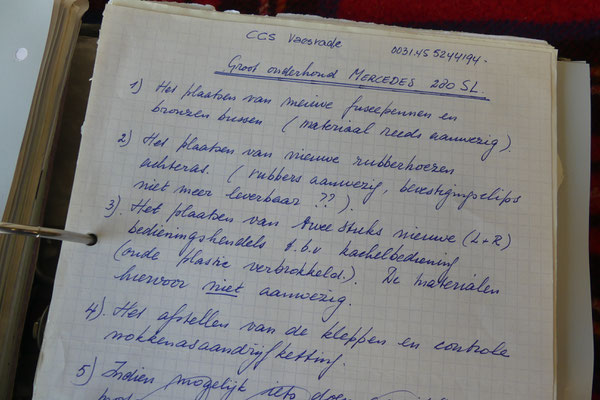 CGS Vaesrade 0031.45 5244194.
Groot onderhoud MERCEDES 220 SL.
1) Het plaatsen van nieuwe fuseepennen en
bronzen bussen (materiaal reeds aanwezig).
2) Het plaatsen van nieuwe rubberhoezen
achteras. (rubbers aanwezig, bevestigingsclips
niet meer leverbaar ??).
3). Het plaatsen van twee stuks nieuwe (L+R)
bedieningshendels t.b.v kachelbediening
(oude plastic verbrokkeld.). De materialen
hiervoor niet aanwezig.
4). Het afstellen van de kleppen en controle
nokkenasaandrijfketting.
5) Indien mogelijk iets doen